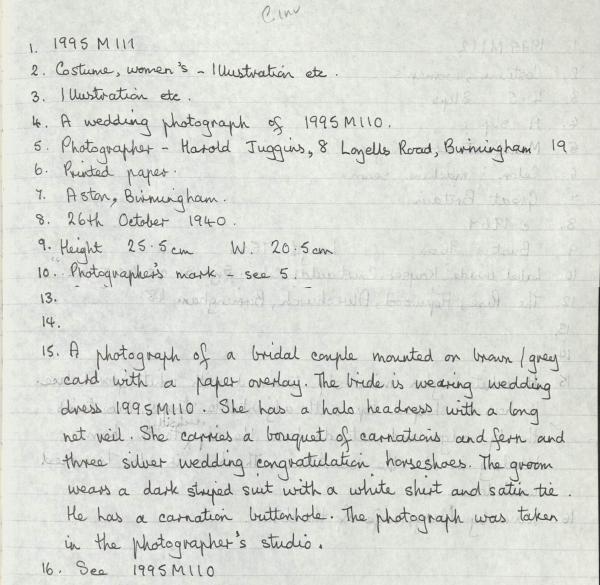 C.inv
1. 1995 M 111
2. Costume, women's - Illustration etc.
3. Illustration etc.
4. A wedding photograph of 1995M110.
5. Photographer - Harold Juggins, 8 Lozells Road, Birmingham 19
6. Printed paper.
7. Aston, Birmingham.
8. 26th October 1940.
9. Height 25.5cm W. 20.5cm
10. Photographer's mark - see 5.
13.
14.
15. A photograph of a bridal couple mounted on brown/grey
card with a paper overlay. The bride is wearing wedding
dress 1995M110. She has a halo headress with a long
net veil. She carries a bouquet of carnations and fern and
three silver wedding congratulation horseshoes. The groom
wears a dark striped suit with a white shirt and satin tie.
He has a carnation buttonhole. The photograph was taken
in the photographer's studio.
16. See 1995M110